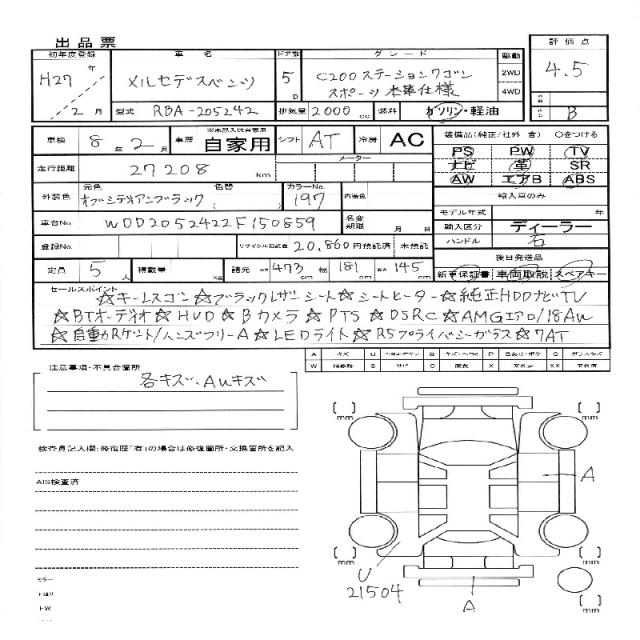 出品票
初年度登録 車名 ドア数 グレード 駆動 評価点
H27年 メルセデスベンツ 5D C200ステーションワゴン 2WD 4.5
スポーツ 本革仕様 4WD
/2月 型式 RBA-205242 排気量 2000cc 燃料 ガソリン・軽油 B
車検 8年2月 車歴 自家用 シフト AT 冷房 AC 装備品(純正/社外 含) ○をつける
PS PW TV
走行距離 27208 km メーター ナビ 革 SR
AW エアB ABS
外装色 元色 オブシディアンブラック 色替 カラーNo. 197 内装色 輸入車のみ
モデル年式 年
車台No. WDD2052422F150859 名変期限 月 日 輸入区分 ディーラー
登録No. リサイクル預託金 20,860円預託済 未預託 ハンドル 右
後日発送品
定員 5人 積載量 kg 諸元 473 幅 181 145 新車保証書 車両取説 スペアキー
セールスポイント
☆キーレスゴー☆ブラックレザーシート☆シートヒーター☆純正HDDナビTV
☆BTオーディオ☆HUD☆Bカメラ☆PTS☆DSRC☆AMGエアロ/18AW
☆自動Rゲート/ハンズフリーA☆LEDライト☆RSプライバシーガラス☆7AT
A キズ U W S サビ C P X XX G
注意事項・不具合箇所
各キズ、AWキズ
検査員記入欄:修復歴「有」の場合は修復箇所・交換箇所を記入
AIS検査済
mm mm
A
mm mm
U
21504
A
mm